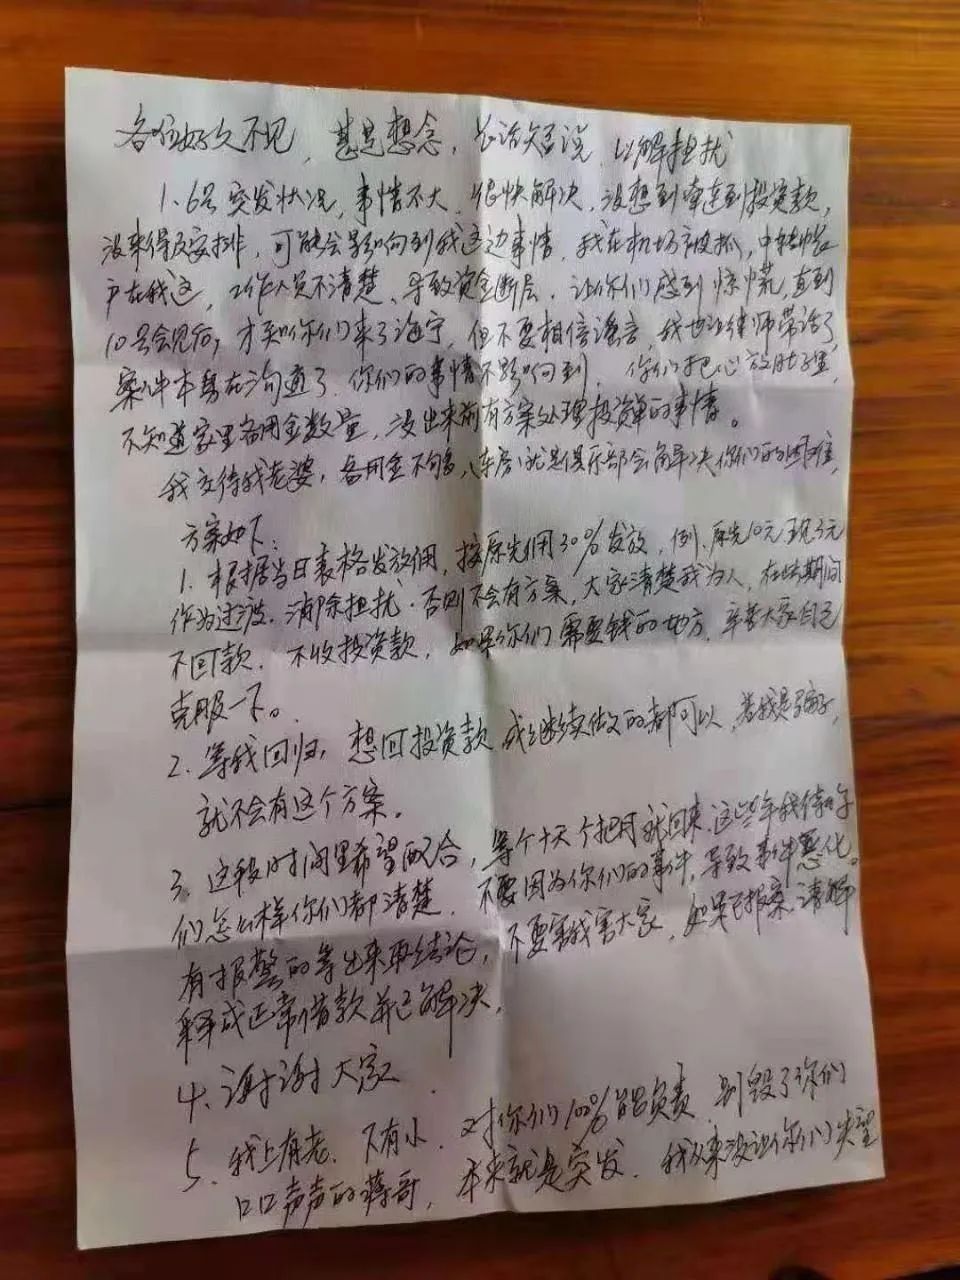 各位好久不见，甚是想念，长话短说，以解担扰
1、6号突发状况，事情不大，很快解决，没想到牵连到投资款，
没来得及安排，可能会影响到我这边事情，我在机场被抓，中转帐
户在我这，工作人员不清楚、导致资金断层、让你们感到惊慌，直到
10号会见后，才知你们来了海宁，但不要相信谣言，我也让律师带话了，
案件本身在沟通了，你们的事情不影响到，你们把心放肚子里，
不知道家里备用金数量，没出来前有方案处理投资单的事情。
我交待我老婆，备用金不够多，(车房)就是俱乐部会解决你们的困难，
方案如下：
1、根据当日表格发放佣，按原先佣30%发放，例、原先10元现3元
作为过渡，消除担扰、否则不会有方案，大家清楚我为人，在此期间
不回款、不收投资款，如果你们需要钱的地方，辛苦大家自己
克服一下。
2、等我回归，想回投资款或继续做的都可以，若我是骗子，
就不会有这个方案。
3、这段时间里希望配合，等个十天个把月就回来，这些年我待你
们怎么样你们都清楚，不要因为你们的事件，导致事件恶化。
有报警的等出来再结论，不要害我害大家，如果已报案、请解
释成正常借款并已解决，
4、谢谢大家
5、我上有老、下有小、对你们100%能负责，别毁了你们
口口声声的蒋哥，本来就是突发，我从来没让你们失望